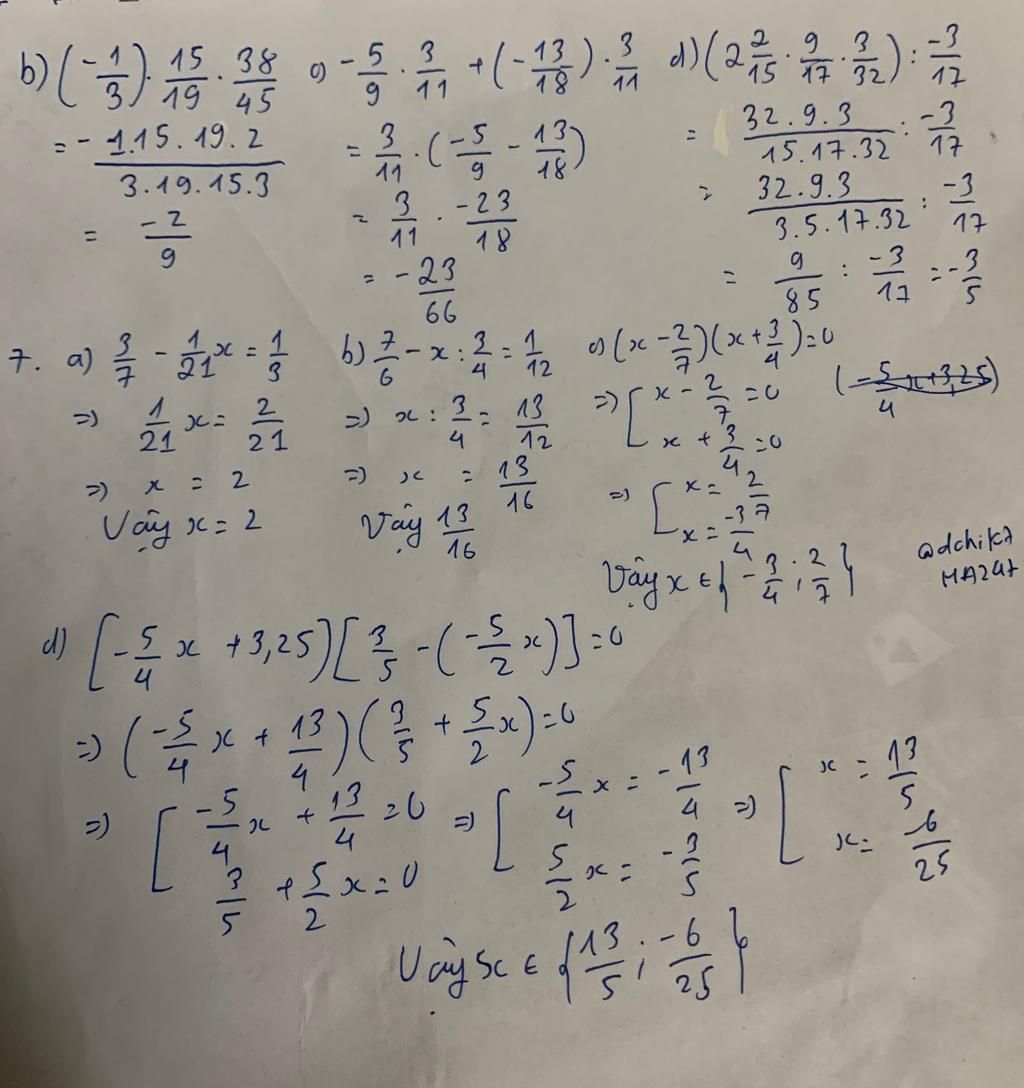 b) (-1/3) · 15/19 · 38/45
= - 1.15.19.2 / 3.19.15.3
= -2/9
c) -5/9 · 3/11 + (-13/18) · 3/11
= 3/11 · (-5/9 - 13/18)
= 3/11 · -23/18
= -23/66
d) (2 2/15 · 9/17 · 3/32) : -3/17
= 32.9.3 / 15.17.32 : -3/17
= 32.9.3 / 3.5.17.32 : -3/17
= 9/85 : -3/17 = -3/5
7. a) 3/7 - 1/21 x = 1/3
=) 1/21 x = 2/21
=) x = 2
Vậy x = 2
b) 7/6 - x : 3/4 = 1/12
=) x : 3/4 = 13/12
=) x = 13/16
Vậy 13/16
c) (x - 2/7)(x + 3/4) = 0
=) [ x - 2/7 = 0
x + 3/4 = 0
=) [ x = 2/7
x = -3/4
Vậy x ∈ { -3/4 ; 2/7 }
(-5/4 x + 3,25)
d) [-5/4 x + 3,25) [3/5 - (-5/2 x)] = 0
=) (-5/4 x + 13/4) (3/5 + 5/2 x) = 0
=) [ -5/4 x + 13/4 = 0 =) [ -5/4 x = -13/4 =) [ x = 13/5
3/5 + 5/2 x = 0 5/2 x = -3/5 x = -6/25
Vậy x ∈ { 13/5 ; -6/25 }